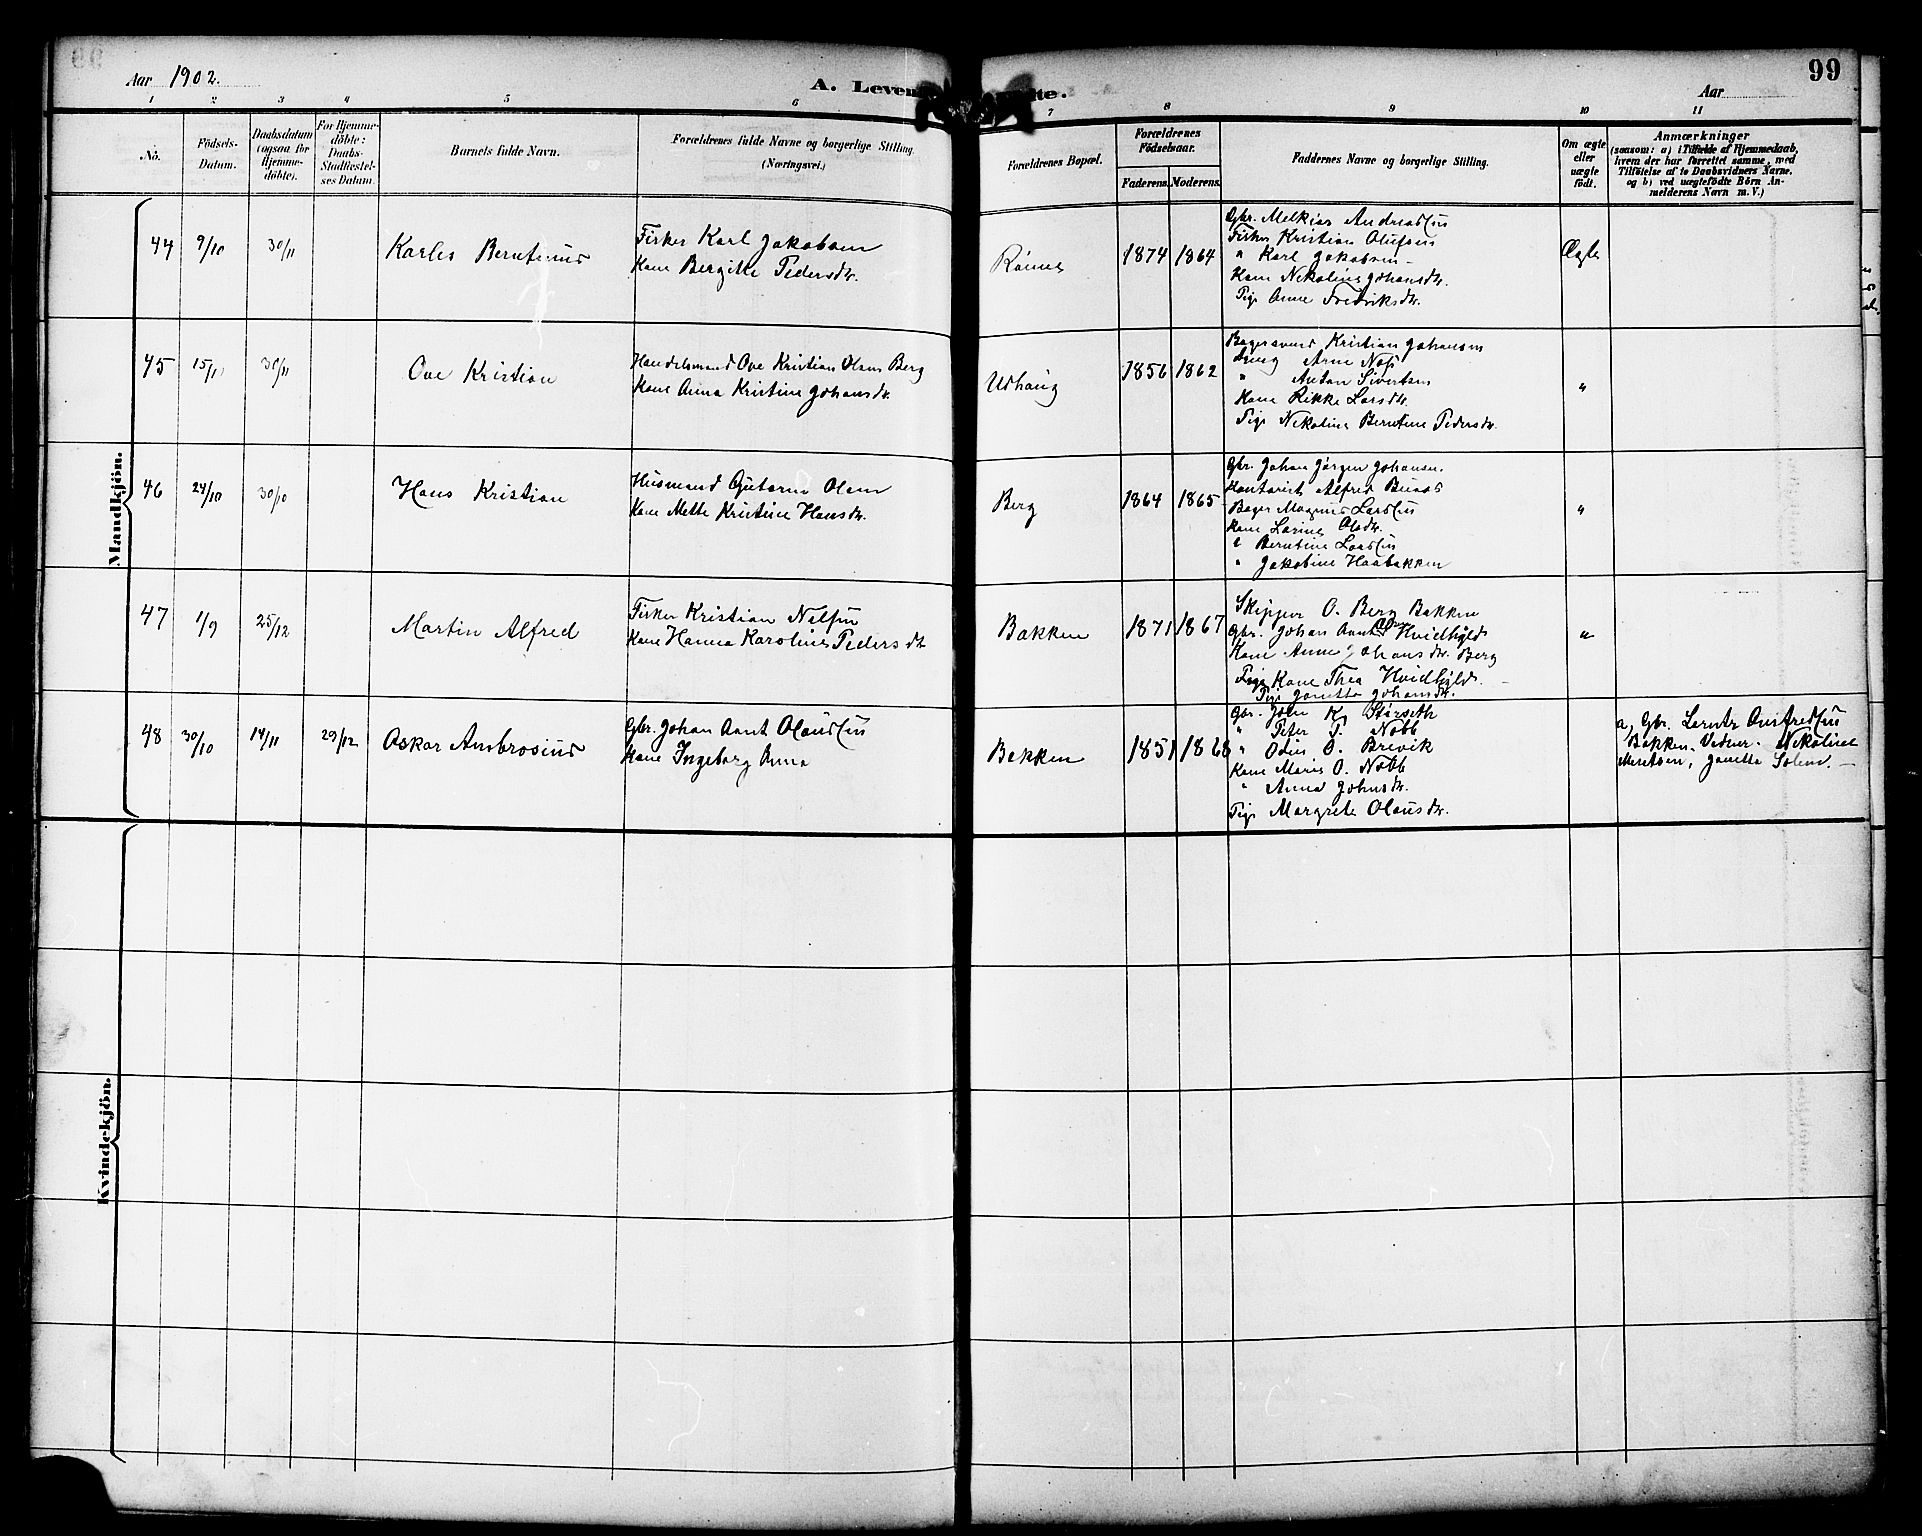 99
Aar 1902.
A. Leven te.
Aar
1 2 3 4 5 6 7 8 9 10 11
No.
Födsels-
Datum.
Daabsdatum
(ogsaa for
Hjemme-
döbte).
For Hjemme-
döbte:
Daabs-
Stadfæstel-
ses Datum.
Barnets fulde Navn.
Forældrenes fulde Navne og borgerlige Stilling.
(Næringsvei.)
Forældrenes Bopæl.
Forældrenes
Födselsaar.
Faderens. Moderens.
Faddernes Navne og borgerlige Stilling.
Om ægte
eller
uægte
født.
Anmærkninger
(saasom: a) i Tilfælde af Hjemmedaab,
hvem der har forrettet samme, med
Tilföielse af to Daabsvidners Navne.
og b) ved uægtefödte Börn An-
melderens Navn m. V.)
Mandkjön.
44 9/10 30/11 Karles Berntinus
Fisker Karl Jakobsen
Kone Bergitte Pedersdtr.
1874 1864
Gbr. Melkior Andreassen
Fisker Kristian Olufsen
" Karl Jakobsen
Kone Nekoline Johansdtr.
Pige Anne Fredriksdtr.
Ægte
45 15/11 30/11 Ove Kristian
Handelsmand Ove Kristian Berg
Kone Anna Kristine Johansdtr.
Udhaug
1856 1862
Bagersvend Kristian Johansen
Dreng Arne
" Anton Sivertsen
Kone Rikke Larsdtr.
Pige Nekoline Berntine Pedersdtr.
"
46 24/10 30/10 Hans Kristian
Husmand Gutorm Olsen
Kone Mette Kristine Hansdtr.
Berg
1864 1865
Gbr. Johan Jørgen Johansen.
Kontorist Alfred
Bager Magnus Larssen
Kone Larine Olsdtr.
" Berntine Larssen
" Jakobine Haabakken
"
47 1/9 25/12 Martin Alfred
Fisker Kristian
Kone Hanna Karoline Pedersdtr
Bakken
1871 1867
Skipper O. Berg Bakken
Gbr. Johan Arnt Hvidbyld
Kone Anne Johansdtr. Berg
Pige Kone Thea Hvidbyld.
Pige Janetta Johansdtr.
"
48 30/10 14/11 29/12 Oskar Ambrosius
Gbr. Johan Arnt Olaussen
Kone Ingeborg Anna
Bakken
1851 1868
Gbr. John K. Størseth
" Peter P. Nobb
" Odin O. Brevik
Kone Maria O. Nobb
" Anna Johnsdtr.
Pige Margrete Olausdtr.
a, Gbr. Lorntz
Bakken. Vidner. Nekoline
Janetta
Kvindekjön.